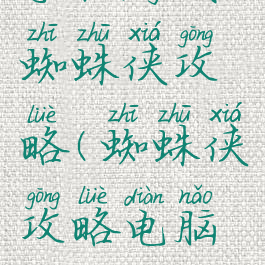 zhī zhū xiá gōng
蜘蛛侠攻
lüè zhī zhū xiá
略(蜘蛛侠
gōng lüè diàn nǎo
攻略电脑